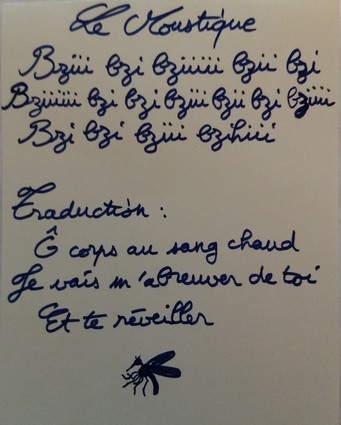 Le Moustique
Bziii bzi bziiiii bzii bzi
Bziiiiii bzi bzi bziii bzii bzi bziiii
Bzi bzi bziii bzihiii
Traduction :
Ô corps au sang chaud
Je vais m'abreuver de toi
Et te réveiller